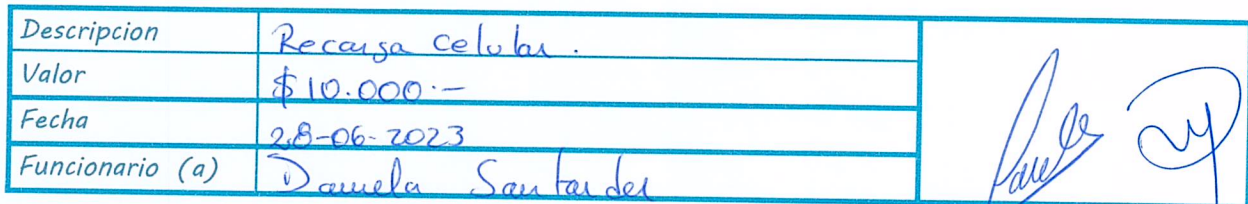 Descripcion Recarga celular.
Valor $10.000.-
Fecha 28-06-2023
Funcionario (a) Daniela Santander